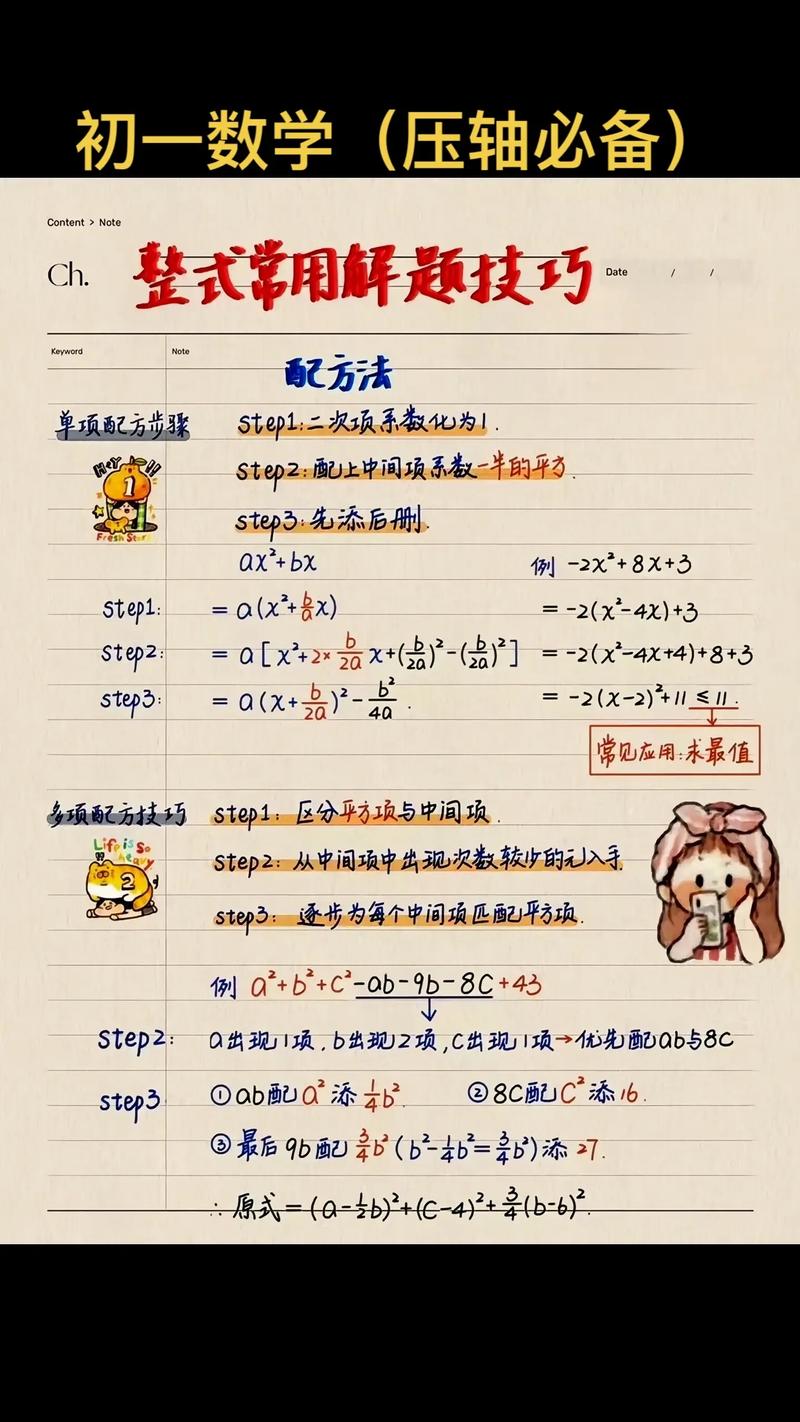 初一数学（压轴必备）
Content > Note
Ch. 整式常用解题技巧 Date / /
Keyword Note
配方法
单项配方步骤 step1:二次项系数化为1.
step2:配上中间项系数一半的平方.
Hey!! 1 Fresh Start
step3:先添后删.
ax²+bx 例 -2x²+8x+3
step1: =a(x²+b/a x) =-2(x²-4x)+3
step2: =a[x²+2×b/2a x+(b/2a)²-(b/2a)²] =-2(x²-4x+4)+8+3
step3: =a(x+b/2a)²-b²/4a. =-2(x-2)²+11≤11.
常见应用:求最值
多项配方技巧 step1:区分平方项与中间项.
Life is so heavy 2
step2:从中间项中出现次数较少的元入手.
step3:逐步为每个中间项匹配平方项.
例 a²+b²+c²-ab-9b-8c+43
step2: a出现1项,b出现2项,c出现1项→优先配ab与8c
step3 ①ab配a²添1/4b². ②8c配c²添16.
③最后9b配3/4b²(b²-1/4b²=3/4b²)添27.
∴原式=(a-1/2b)²+(c-4)²+3/4(b-6)².